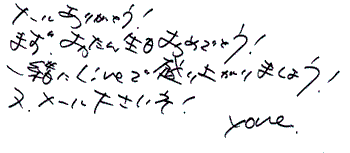 メールありがとう!
まず、おたん生日おめでとう!
一緒にLiveで盛り上がりましょう!
又、メール下さいネ!